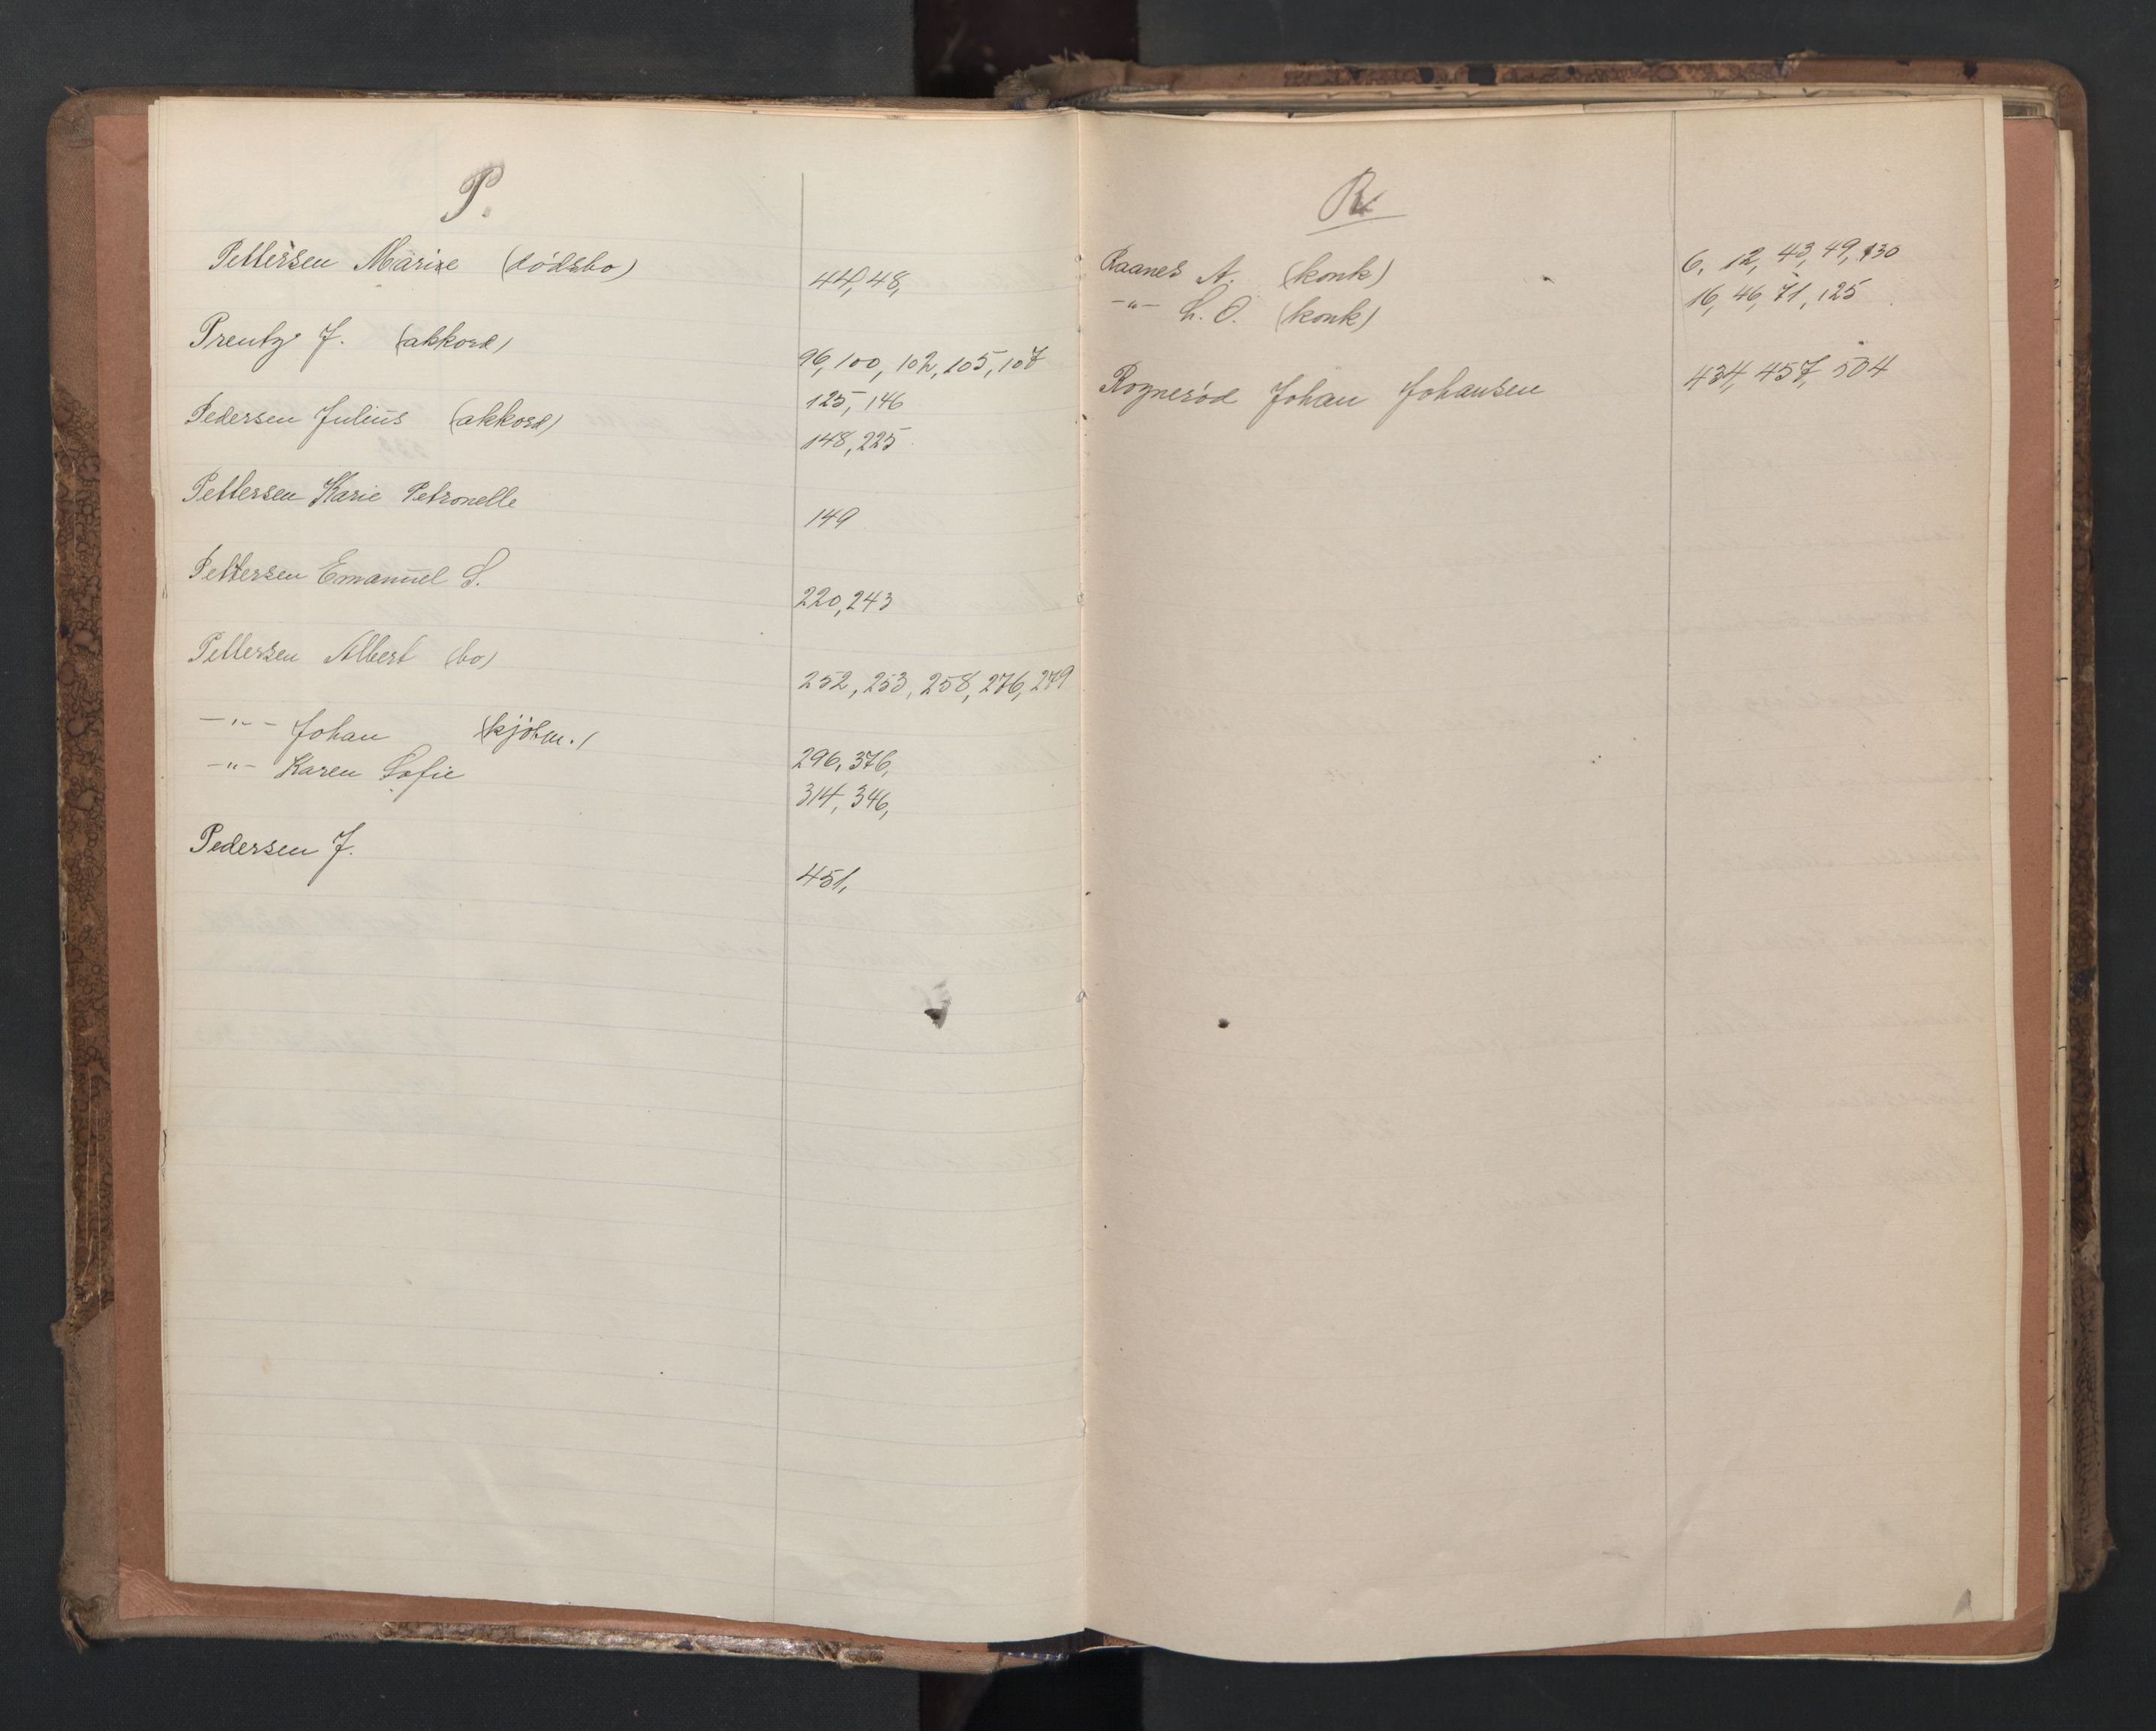 P.
Pettersen Marine (dödsbo) 44, 48,
Prentz J. (akkord) 96, 100, 102, 105, 107
125, 146
Pedersen Julius (akkord) 148, 225
Pettersen Karie Petronelle 149
Pettersen Emanuel S. 220, 243
Pettersen Albert (bo) 252, 253, 258, 276, 279
—"— Johan (kjöbm.) 296, 376,
—"— Karen Sofie 314, 346,
Pedersen J. 451,
R
Raanes A. (konk) 6, 12, 43, 49, 130
—"— L. O. (konk) 16, 46, 71, 125
Rognerød Johan Johansen 434, 457, 504